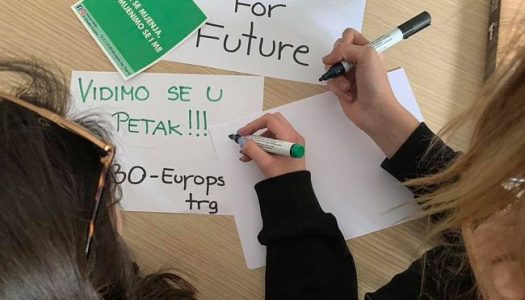 SE MIJENJA,
MIJENJIMO SE I MI!
For
Future
VIDIMO SE U
PETAK!!!
30-Europs
trg